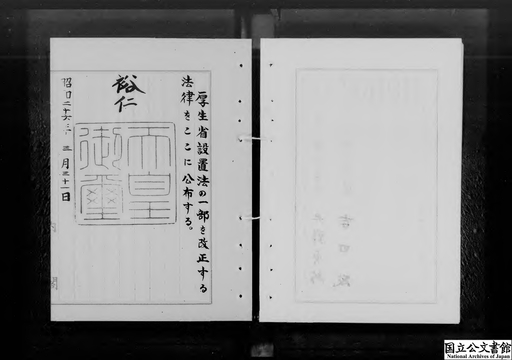 厚生省設置法の一部を改正する
法律をここに公布する。
裕仁
天皇
御璽
三月三十一日
国立公文書館
National Archives of Japan